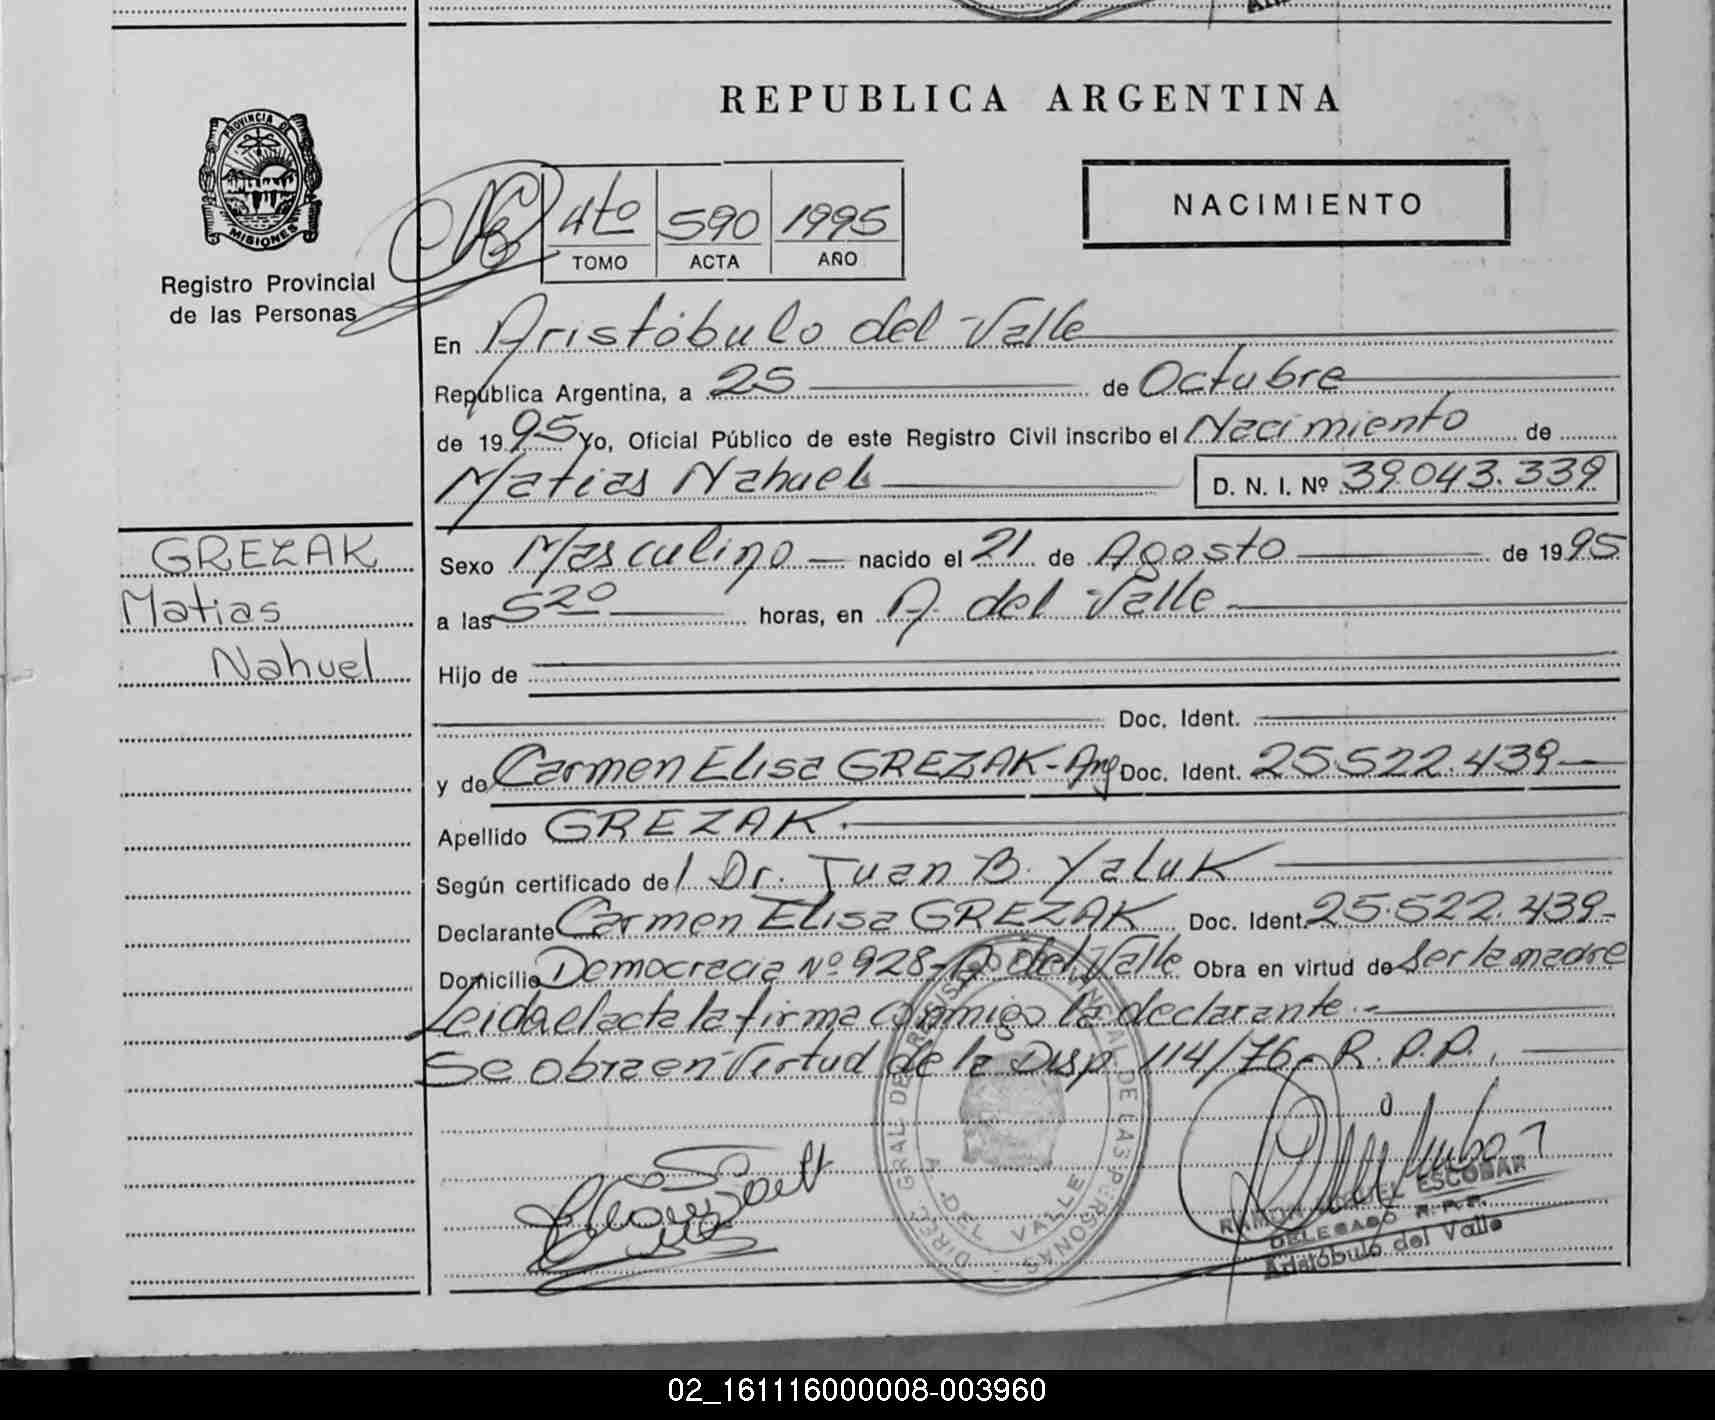 REPUBLICA ARGENTINA
PROVINCIA DE
MISIONES
Registro Provincial
de las Personas
4to 590 1995
TOMO ACTA AÑO
NACIMIENTO
En Aristóbulo del Valle
República Argentina, a 25 de Octubre
de 1995 Yo, Oficial Público de este Registro Civil inscribo el Nacimiento de
Matias Nahuel D. N. I. Nº 39.043.339
GREZAK
Matias
Nahuel
Sexo Masculino nacido el 21 de Agosto de 1995
a las 5 20 horas, en A. del Valle
Hijo de
Doc. Ident.
y de Carmen Elisa GREZAK-Arg Doc. Ident. 25.522.439
Apellido GREZAK.
Según certificado del Dr. Juan B. Yaluk
Declarante Carmen Elisa GREZAK Doc. Ident. 25.522.439
Domicilio Democracia Nº 928-A del Valle Obra en virtud de Ser la madre
Leida el acta la firma conmigo la declarante.-
Se obra en virtud de la Disp. 114/76-R.P.P.
DIREC. GRAL DEL REGISTRO PROVINCIAL DE LAS PERSONAS
A. DEL VALLE
RAMON MIGUEL ESCOBAR
DELEGADO R.P.P.
Aristóbulo del Valle
02_161116000008-003960